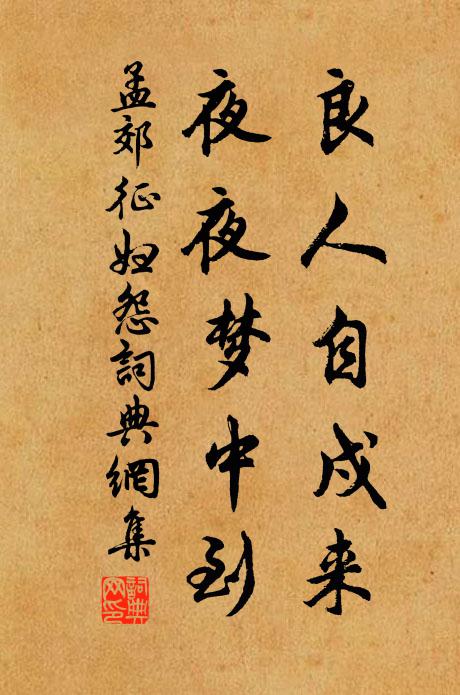 良人自戍来
夜夜梦中到
孟郊征妇怨詞典網集
詞典网印